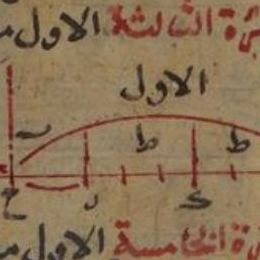 ئرة الثالثة الاول م
الاول
ب ط ط
ح ر ك
ئرة الخامسة الاول م